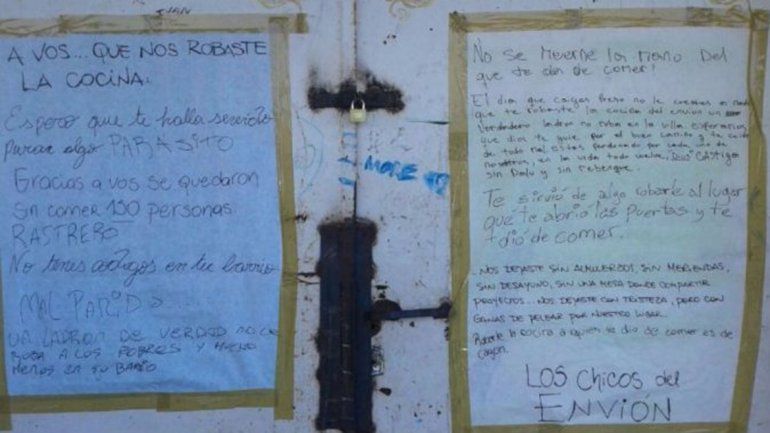 JUAN
A VOS... QUE NOS ROBASTE
LA COCINA:
Espero que te halla servido
para algo PARÁSITO
Gracias a vos se quedaron
sin comer 150 personas
RASTRERO
No tenes codigos en tu barrio
MAL PARIDO
UN LADRON DE VERDAD NO LE
ROBA A LOS POBRES Y MUCHO
MENOS EN SU BARRIO
MORE
No se muerde la mano del
que te da de comer!
El dia que caigas Preso no le cuentes a nadie
que te robaste la cocina del envion un
Verdadero ladron no roba en la villa esperamos
que dios te guie por el buen camino y te cuide
de todo mal estas perdonado por cada uno de
nosotros, en la vida todo vuelve, DIOS CASTIGA
sin Palo y sin rebenque.
Te sirvió de algo robarle al lugar
que te abrio las puertas y te
dió de comer.
...NOS DEJASTE SIN ALMUERZOS, SIN MERIENDAS,
SIN DESAYUNO, SIN UNA MESA DONDE COMPARTIR
PROYECTOS... NOS DEJASTE CON TRISTEZA, PERO CON
GANAS DE PELEAR POR NUESTRO LUGAR.
Robarle la cocina a quien te dio de comer es de
cagon.
LOS CHICOS del
ENVIÓN